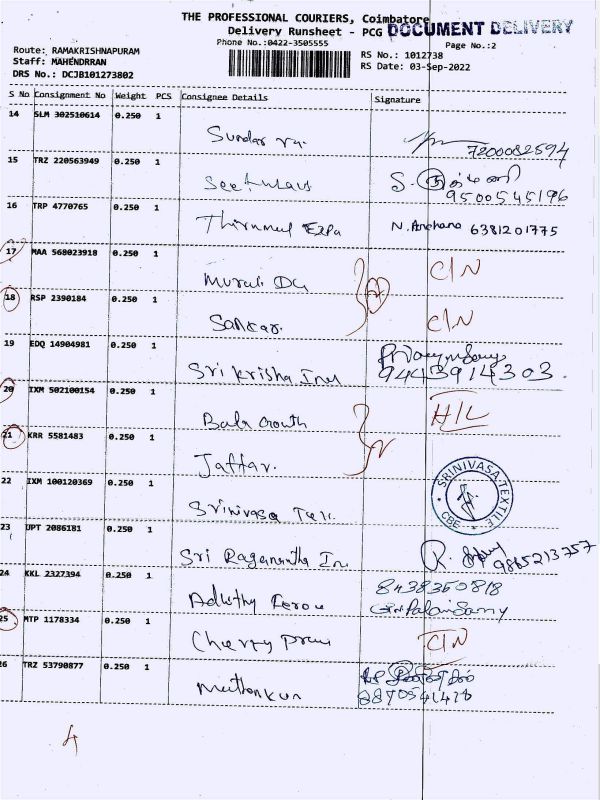 THE PROFESSIONAL COURIERS, Coimbatore
Delivery Runsheet - PCG
DOCUMENT DELIVERY
Phone No.:0422-3505555
Page No.:2
Route: RAMAKRISHNAPURAM
RS No.: 1012738
Staff: MAHENDRRAN
RS Date: 03-Sep-2022
DRS No.: DCJB101273802
S No Consignment No Weight PCS Consignee Details Signature
14 SLM 302510614 0.250 1
Sundar
7200082594
15 TRZ 220563949 0.250 1
S.
9500545196
16 TRP 4770765 0.250 1
N. Archana 6381201775
17 MAA 568023918 0.250 1
Murali DG C/N
18 RSP 2390184 0.250 1
Sankar. C/N
19 EDQ 14904981 0.250 1
Sri Krisha
9443914303.
20 IXM 502100154 0.250 1
Bala H/L
21 KRR 5581483 0.250 1
Jaffar.
SRINIVASA TEXTILE
CBE
22 IXM 100120369 0.250 1
Srinivasa
23 UPT 2086181 0.250 1
Sri
R.
9865213757
24 KKL 2327394 0.250 1
8438350818
25 MTP 1178334 0.250 1
Cherry C/N
26 TRZ 53790877 0.250 1
8870541428